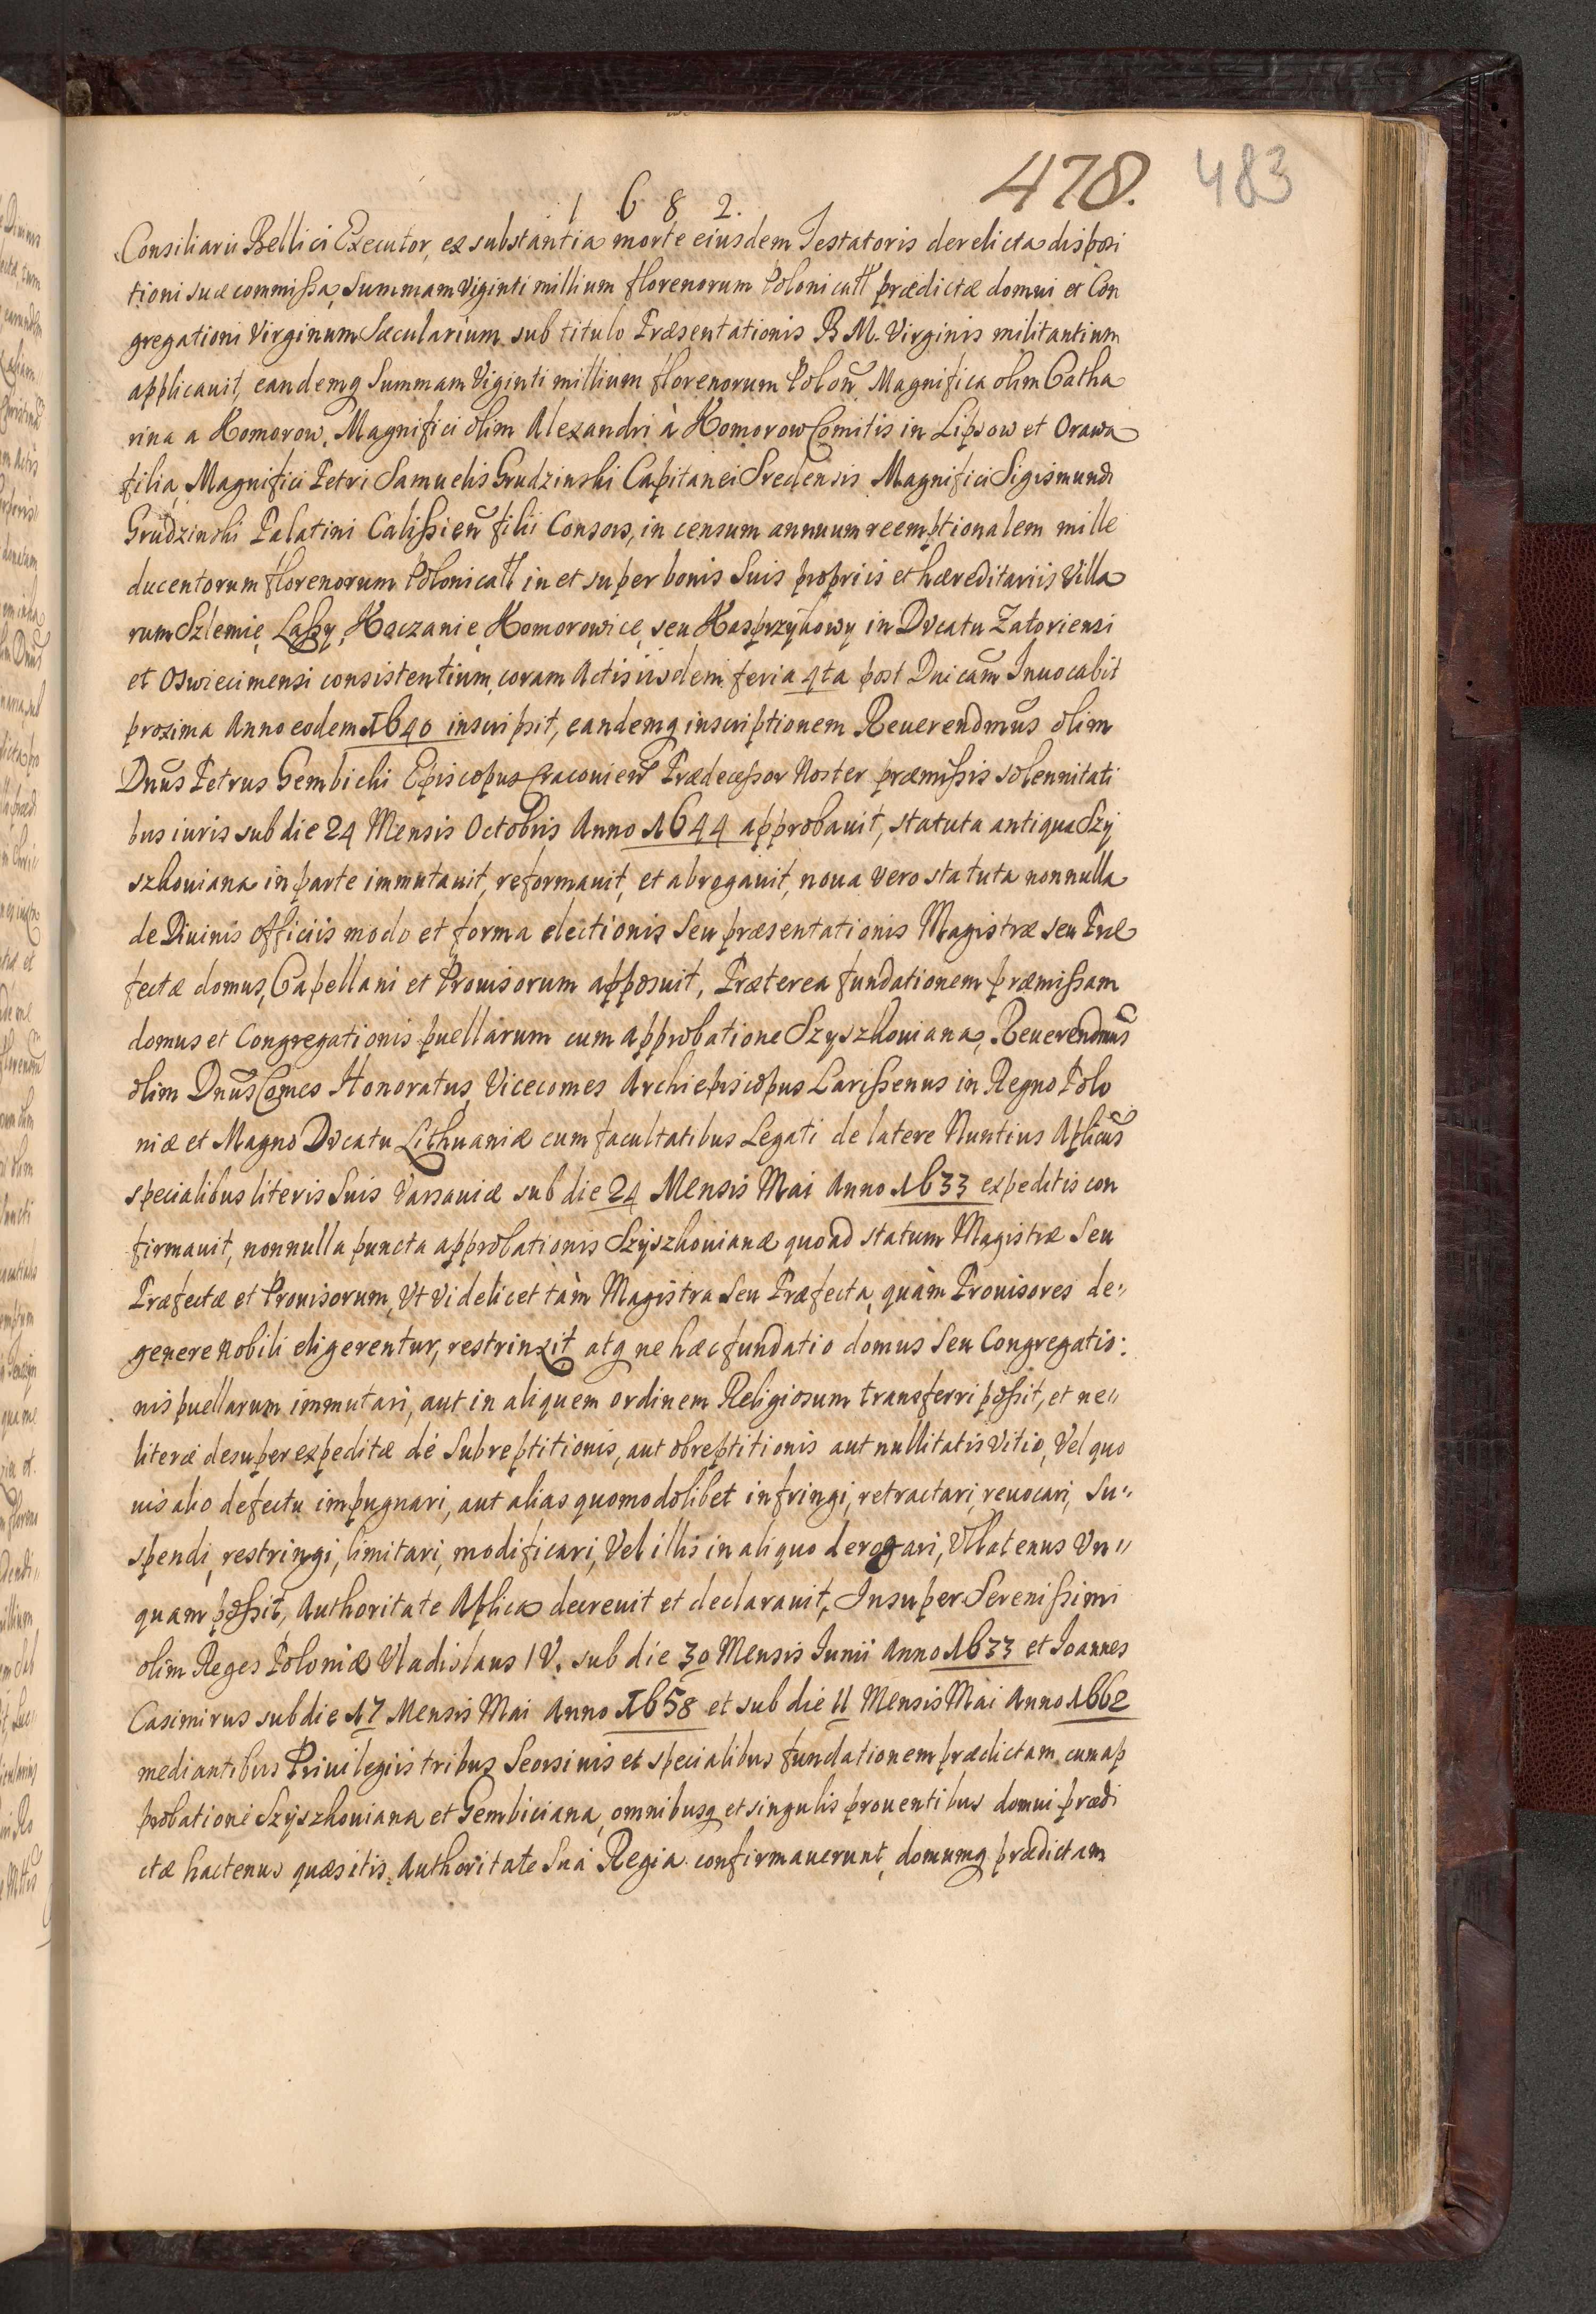 478. 483
1 6 8 2.
Consiliarii Bellici Executor, ex substantia morte eiusdem Testatoris derelicta disposi
tioni suæ commissa, Summam Viginti millium florenorum Polonicall prædictæ domui et Con
gregationi Virginum Sæcularium sub titulo Præsentationis B M. Virginis militantium
applicauit, eandemq Summam Viginti millium florenorum Polon̄ Magnifica olim Catha
rina a Komorow, Magnifici olim Alexandri à Komorow Comitis in Lipsow et Orawa
filia, Magnifici Petri Samuelis Grudzinski Capitanei Sredensis Magnifici Sigismundi
Grudzinski Palatini Calissien̄ filii Consors, in censum annuum reemptionalem mille
ducentorum florenorum Polonicall in et super bonis Suis propriis et hæreditariis Villa
rum Szlemię Lassy, Koczanie Komorowice, seu Kasprzykowy in Ducatu Zatoriensi
et Oswiecimensi consistentium, coram Actis iisdem feria 4ta post Dnicam̄ Inuocabit
proxima Anno eodem 1640 inscripsit, eandemq inscriptionem Reuerendmūs olim
Dnūs Petrus Gembicki Episcopus Cracouien̄ Prædecessor Noster præmissis solennitati
bus iuris sub die 24 Mensis Octobris Anno 1644 approbauit, statuta antiqua Szy
szkouiana in parte immutauit, reformauit, et abrogauit, noua vero statuta nonnulla
de Diuinis Officiis modo et forma electionis Seu præsentationis Magistræ seu Præ
fectæ domus, Capellani et Prouisorum apposuit, Præterea fundationem præmissam
domus et Congregationis puellarum cum approbatione Szyszkouiana, Reuerendmūs
olim Dnūs Comes Honoratus Vicecomes Archiepiscopus Larissenus in Regno Polo
niæ et Magno Ducatu Lithuaniæ cum facultatibus Legati de latere Nuntius Aplicūs
specialibus literis Suis Varsauiæ sub die 24 Mensis Mai Anno 1633 expeditis con
firmauit, nonnulla puncta approbationis Szyszkouianæ quoad statum Magistræ Seu
Præfectæ et Prouisorum, Vt videlicet tàm Magistra Seu Præfecta, quàm Prouisores de"
genere nobili eligerentur, restrinxit atq ne hæc fundatio domus Seu Congregatio:
nis puellarum immutari, aut in aliquem ordinem Religiosum transferri possit, et ne"
literæ desuper expeditæ de Subreptitionis, aut obreptitionis aut nullitatis Vitio, Vel quo
uis alio defectu impugnari, aut alias quomodolibet infringi, retractari, reuocari, Su"
spendi, restringi, limitari, modificari, Vel illis in aliquo derogari, Vllatenus Vn"
quam possit, Authoritate Aplica decreuit et declarauit, Insuper Serenissimi
olim Reges Poloniæ Vladislaus IV. sub die 30 Mensis Iunii Anno 1633 et Ioannes
Casimirus sub die 17 Mensis Mai Anno 1658 et sub die 11 Mensis Mai Anno 1662
mediantibus Priuilegiis tribus Seorsiuis et specialibus fundationem prædictam cum ap
probatione Szyszkouiana et Gembiciana, omnibusq et singulis prouentibus domui prædi
ctæ hactenus quæsitis, Authoritate Sua Regia confirmauerunt, domumq prædictam